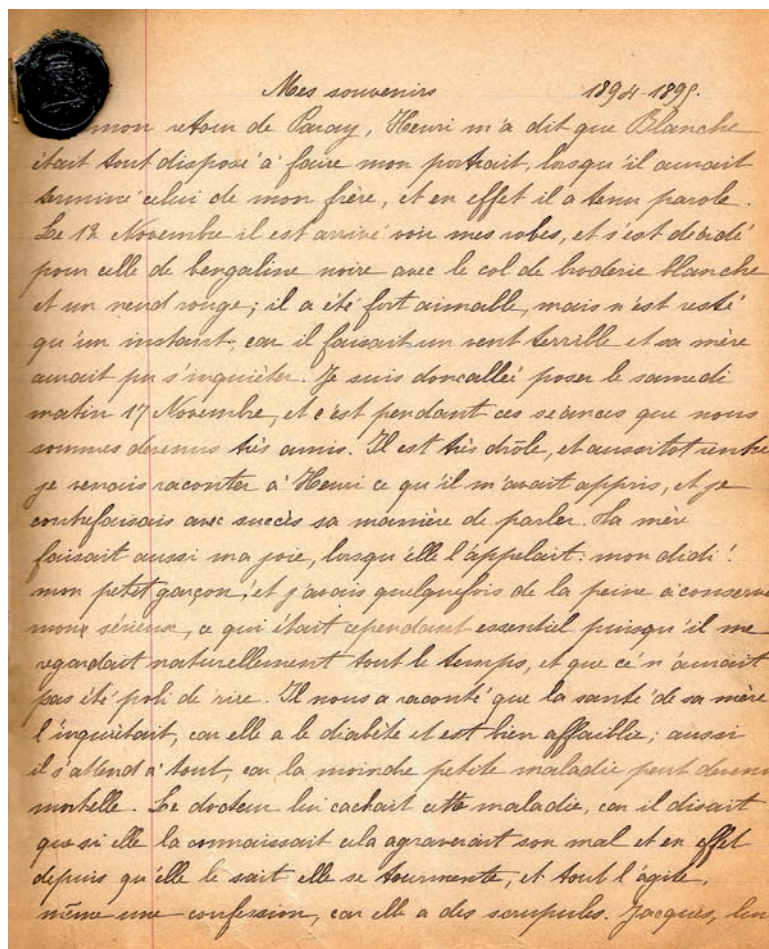 Mes souvenirs 1894-1895.
mon retour de Paray, Henri m'a dit que Blanche
était tout disposé à faire mon portrait, lorsqu'il aurait
terminé celui de mon frère, et en effet il a tenu parole.
Le 12 Novembre il est arrivé voir mes robes, et s'est décidé
pour celle de bengaline noire avec le col de broderie blanche
et un neud rouge; il a été fort aimable, mais n'est resté
qu'un instant, car il faisait un vent terrible et sa mère
aurait pu s'inquiéter. Je suis donc allée poser le samedi
matin 17 Novembre, et c'est pendant ces séances que nous
sommes devenus très amis. Il est très drôle, et aussitot rentré
je venais raconter à Henri ce qu'il m'avait appris, et je
contrefaisais avec succès sa manière de parler. Sa mère
faisait aussi ma joie, lorsqu'elle l'appelait: mon didi!
mon petit garçon! et j'avais quelquefois de la peine à conserve
mon sérieux, ce qui était cependant essentiel puisqu'il me
regardait naturellement tout le temps, et que ce n'aurait
pas été poli de rire. Il nous a raconté que la santé de sa mère
l'inquiétait, car elle a le diabète et est bien affaiblie; aussi
il s'attend à tout, car la moindre petite maladie peut deveni
mortelle. Le docteur lui cachait cette maladie, car il disait
que si elle la connaissait cela agraverait son mal et en effet
depuis qu'elle le sait elle se tourmente, et tout l'agite,
même une confession, car elle a des scrupules. Jacques, lui